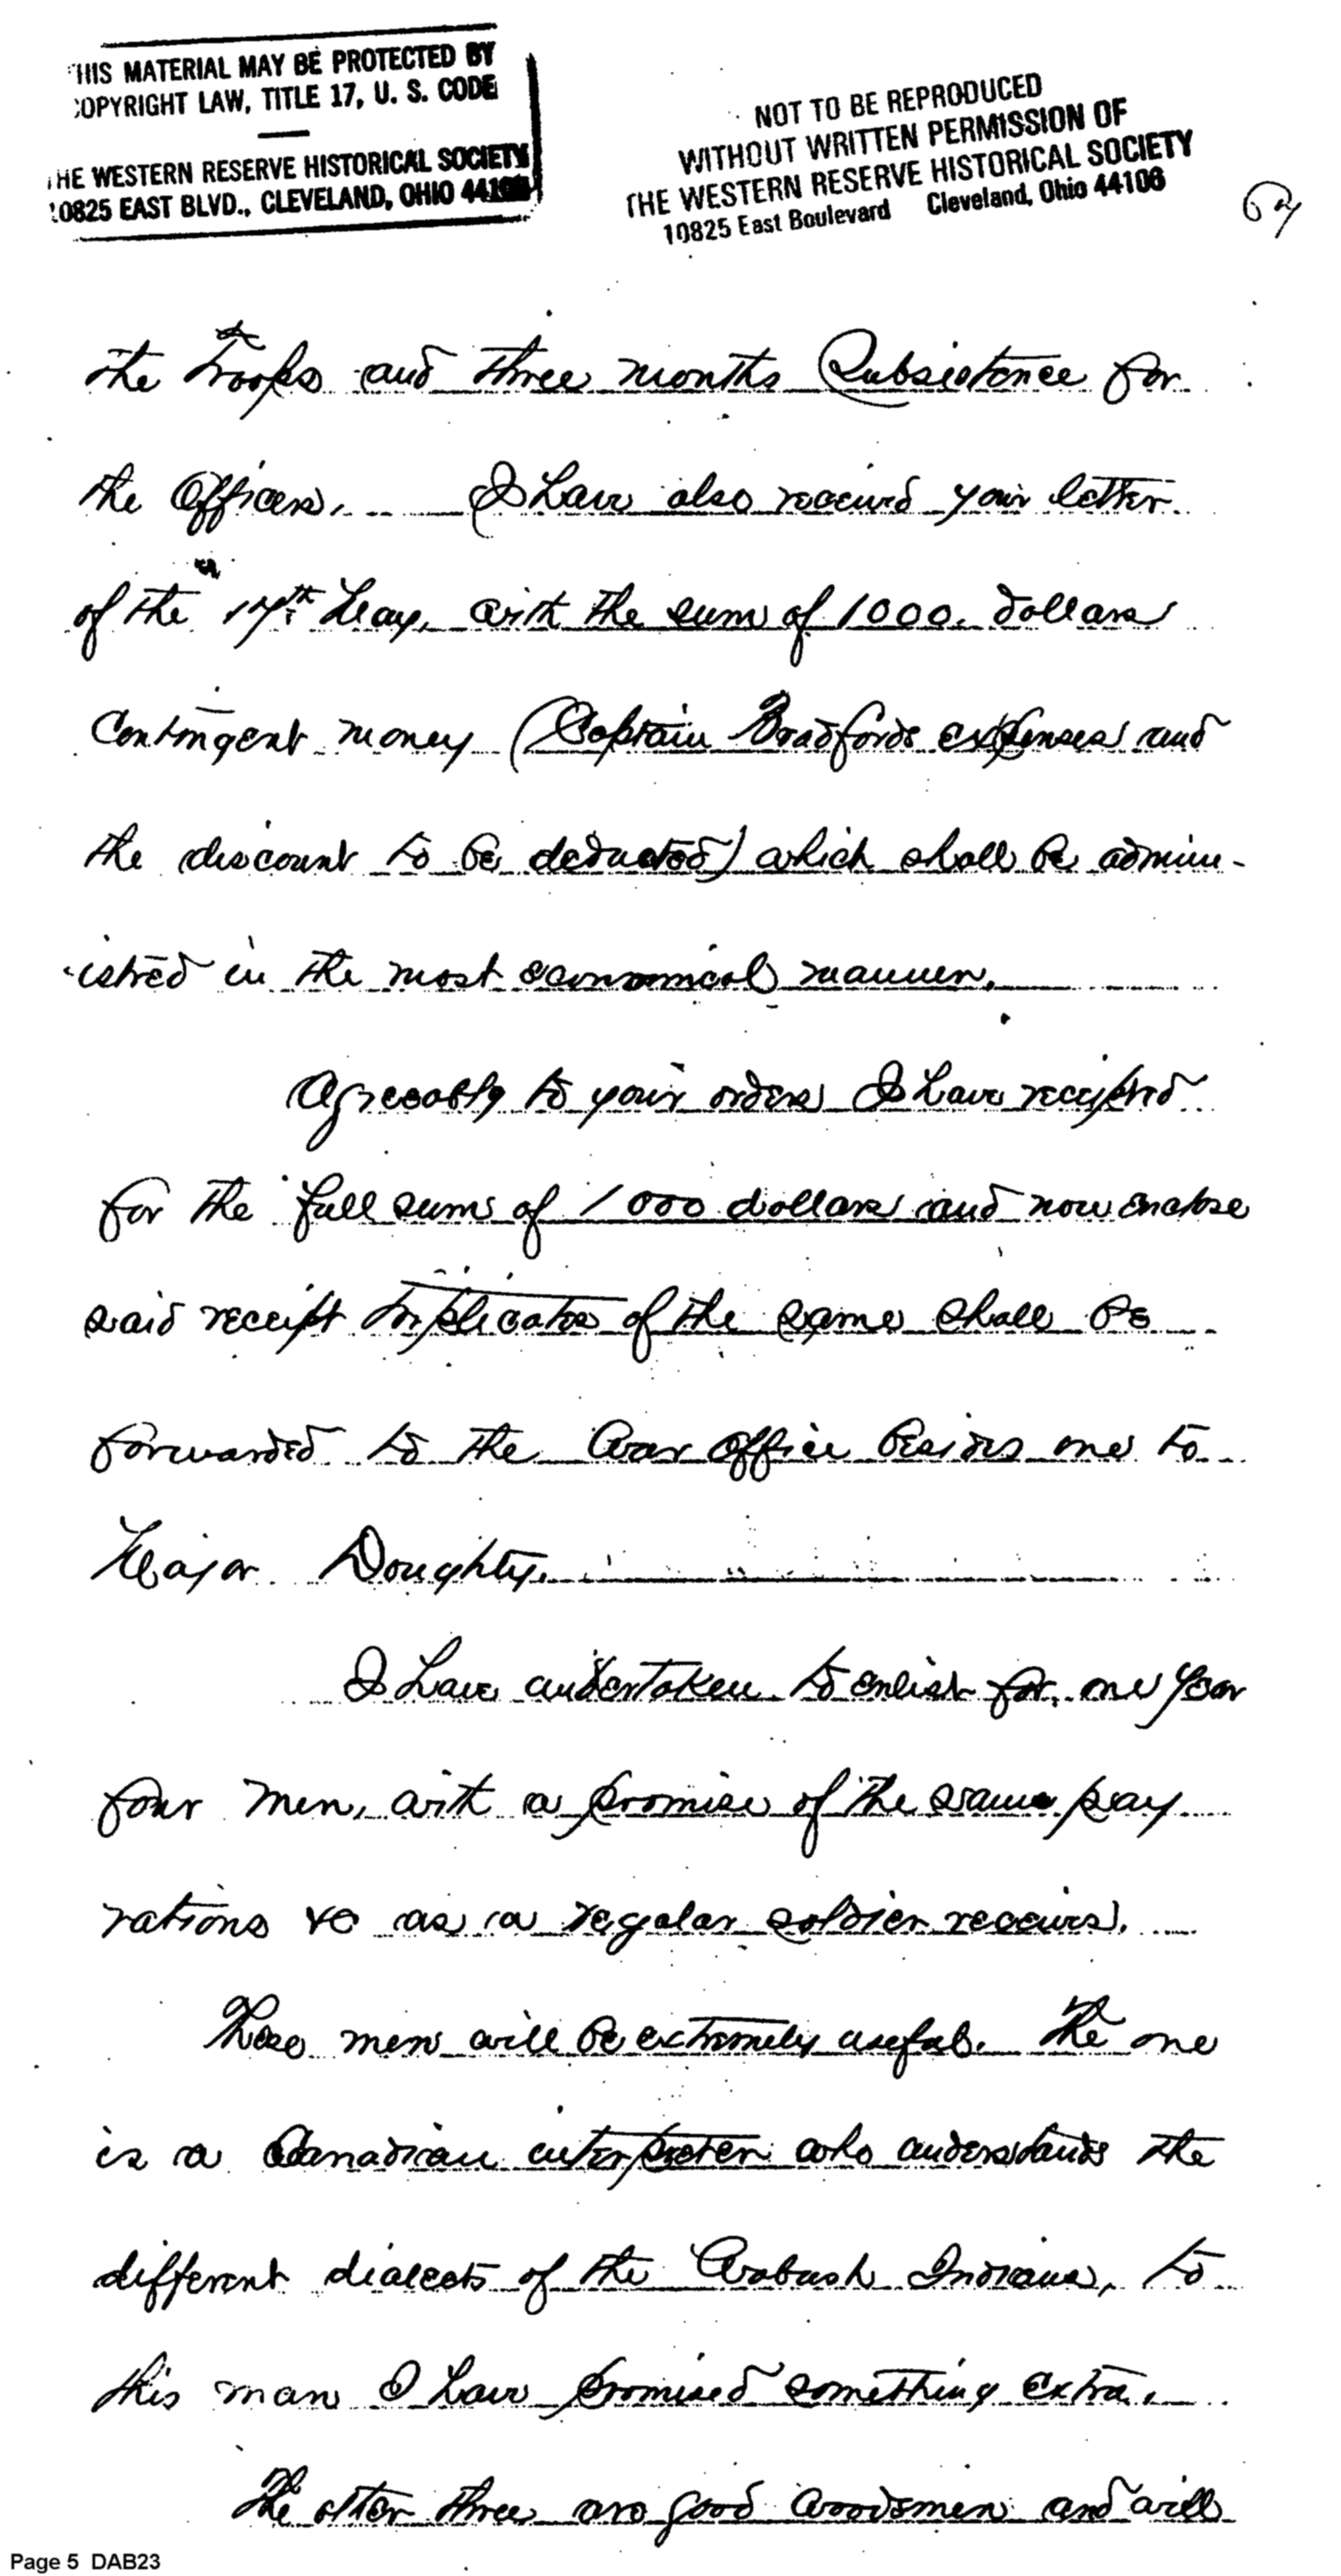 THIS MATERIAL MAY BE PROTECTED BY
COPYRIGHT LAW, TITLE 17, U. S. CODE
THE WESTERN RESERVE HISTORICAL SOCIETY
10825 EAST BLVD., CLEVELAND, OHIO 44106
NOT TO BE REPRODUCED
WITHOUT WRITTEN PERMISSION OF
THE WESTERN RESERVE HISTORICAL SOCIETY
10825 East Boulevard Cleveland, Ohio 44106
the Troops and three months Subsistence for
the Officers. I have also received your letter
of the 17th May, with the sum of 1000. dollars
Contingent money (Captain Bradfords expenses and
the discount to be deducted) which shall be admin-
istred in the most economical manner.
Agreeably to your orders I have receipted
for the full sum of 1000 dollars and now enclose
said receipt triplicates of the same shall be
forwarded to the War office besides one to
Major Doughty.
I have undertaken to enlist for one year
four men, with a promise of the same pay
rations &c as a regular soldier receives.
These men will be extremely useful. The one
is a Canadian interpreter who understands the
different dialects of the Wabash Indians, to
this man I have promised something extra.
The other three are good woodsmen and will
Page 5 DAB23